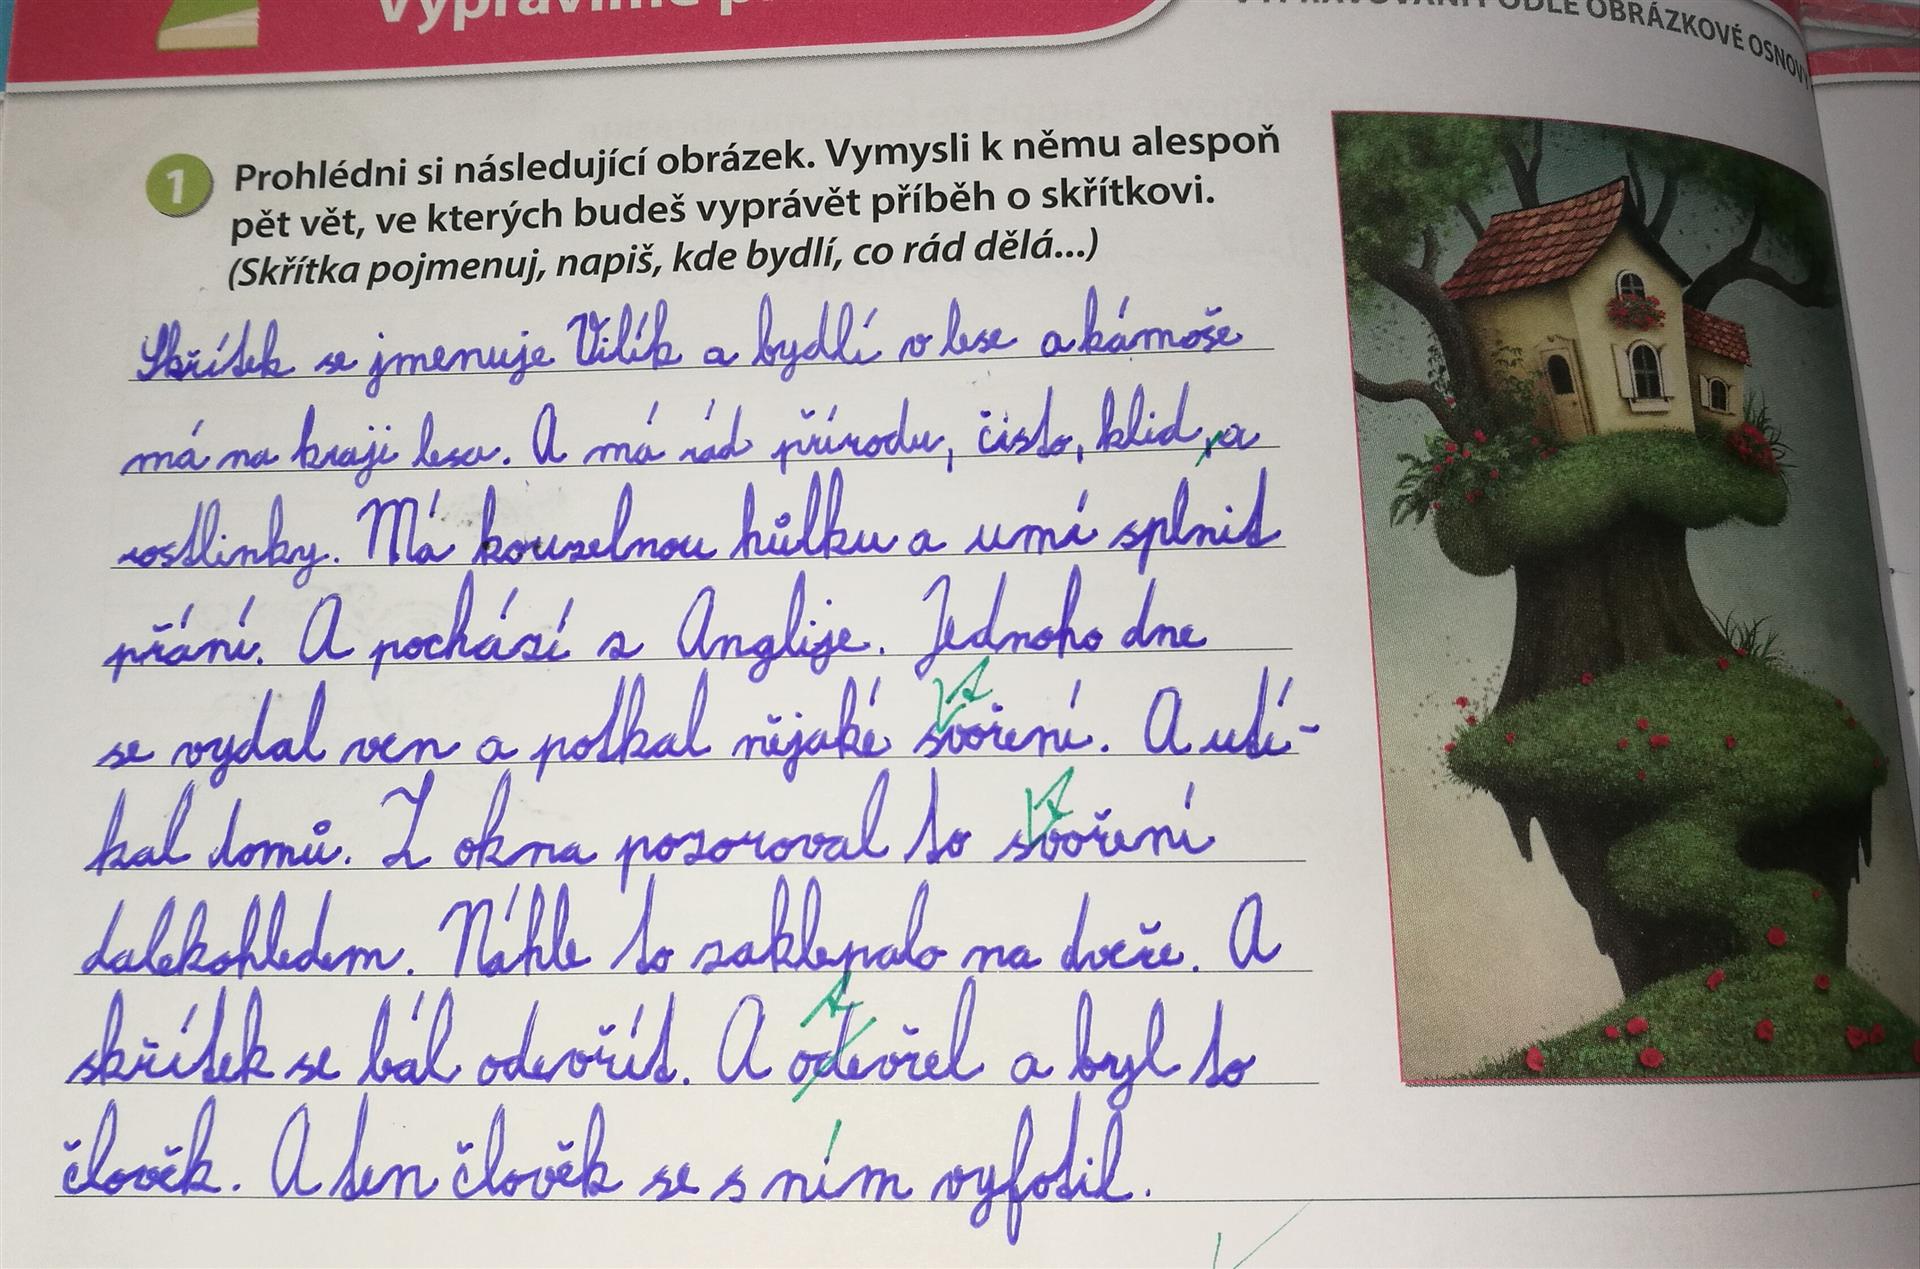 VYPRAVOVÁNÍ PODLE OBRÁZKOVÉ OSNOVY
1 Prohlédni si následující obrázek. Vymysli k němu alespoň
pět vět, ve kterých budeš vyprávět příběh o skřítkovi.
(Skřítka pojmenuj, napiš, kde bydlí, co rád dělá...)
Skřítek se jmenuje Vilík a bydlí v lese a kámoše
má na kraji lesa. A má rád přírodu, čisto, klid, a
rostlinky. Má kouzelnou hůlku a umí splnit
přání. A pochází z Anglije. Jednoho dne
se vydal ven a potkal nějaké stvoření. A utí-
kal domů. Z okna pozoroval to stvoření
dalekohledem. Náhle to zaklepalo na dveře. A
skřítek se bál odevřít. A otevřel a byl to
člověk. A ten člověk se s ním vyfotil.